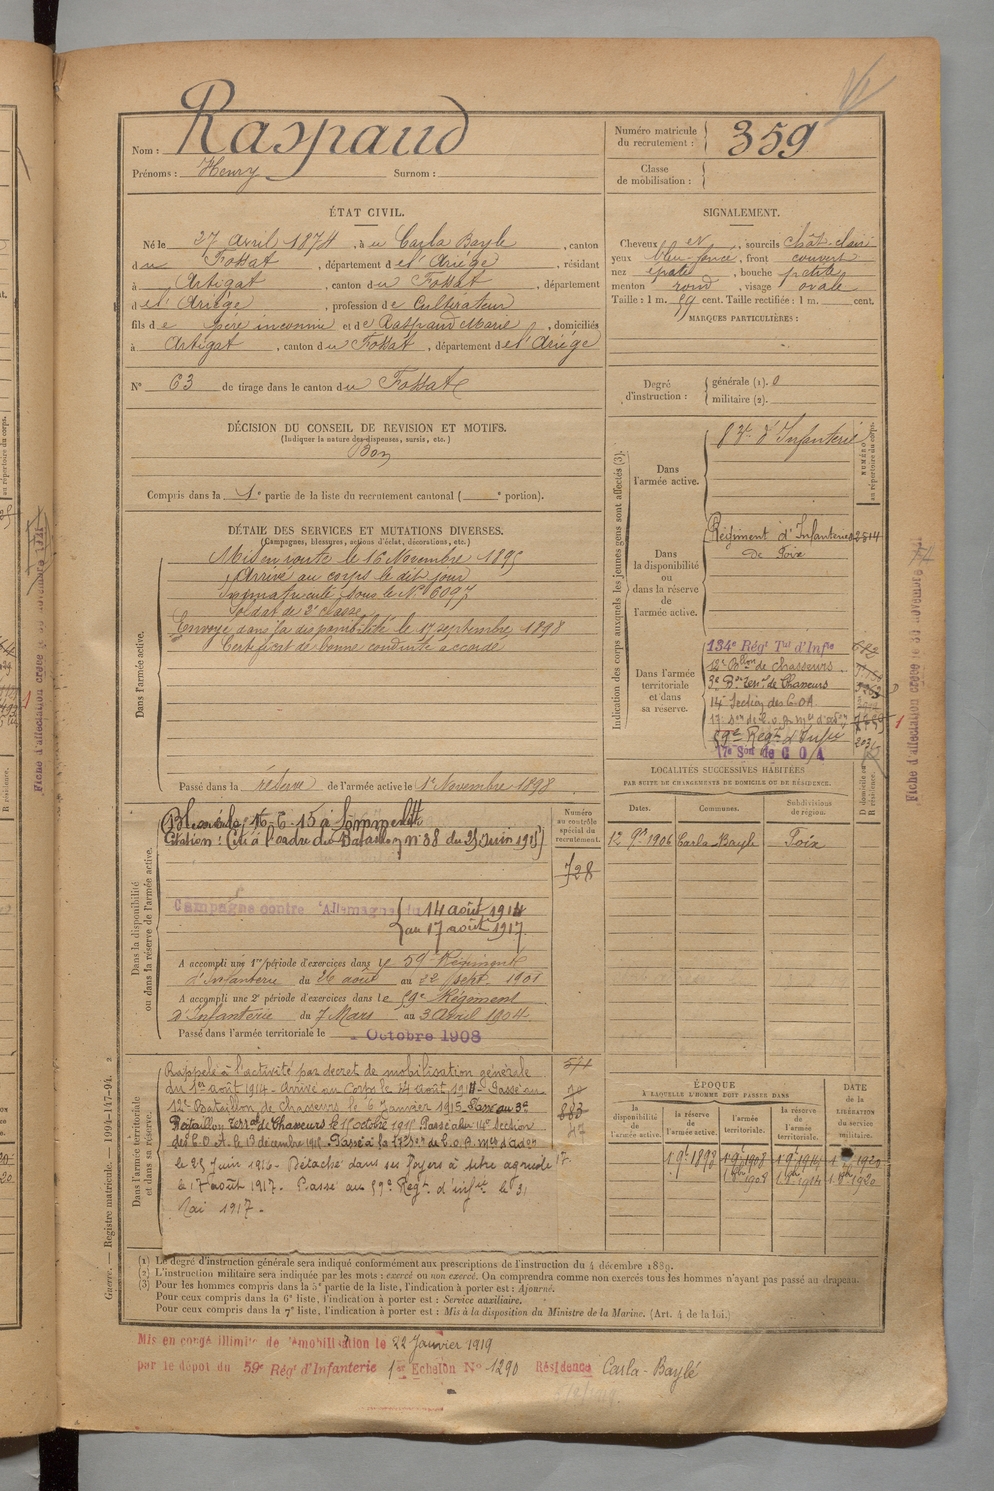 Nom : Raspaud
Prénoms : Henry Surnom :
Numéro matricule du recrutement : 359
Classe de mobilisation :
ÉTAT CIVIL.
Né le 27 Avril 1874, à u Carla Bayle, canton
du Fossat, département de l'Ariège, résidant
à Artigat, canton du Fossat, département
de l'Ariège, profession de Cultivateur
fils de père inconnu et de Raspaud Marie, domiciliés
à Artigat, canton du Fossat, département de l'Ariège
N° 63 de tirage dans le canton du Fossat
SIGNALEMENT.
Cheveux et, sourcils chât-clair
yeux bleu-foncé, front couvert
nez épaté, bouche petite
menton rond, visage ovale
Taille : 1 m. 59 cent. Taille rectifiée : 1 m. cent.
MARQUES PARTICULIÈRES :
Degré d'instruction : générale (1). 0
militaire (2).
DÉCISION DU CONSEIL DE REVISION ET MOTIFS.
(Indiquer la nature des dispenses, sursis, etc.)
Bon
Compris dans la 1e partie de la liste du recrutement cantonal ( e portion).
DÉTAIL DES SERVICES ET MUTATIONS DIVERSES.
(Campagnes, blessures, actions d'éclat, décorations, etc.)
Dans l'armée active.
Mis en route le 16 Novembre 1895
Arrivé au corps le dit jour
Immatriculé sous le N° 6097
Soldat de 2e classe
Envoyé dans la disponibilité le 17 septembre 1898
Certificat de bonne conduite accordé
Passé dans la réserve de l'armée active le 1er Novembre 1898
Indication des corps auxquels les jeunes gens sont affectés (3).
NUMÉRO au répertoire du corps.
Dans l'armée active.
d'Infanterie
Dans la disponibilité ou dans la réserve de l'armée active.
Régiment d'Infanterie 2514
de Foix
Dans l'armée territoriale et dans sa réserve.
134e Régt Tal d'Infie
12e Bon de chasseurs
3e Bn Terral de Chasseurs
14e Section des C.O.A.
59e Régt d'Infie
17e Son de C O A
Fiche d'affectation créée le 30 novembre
LOCALITÉS SUCCESSIVES HABITÉES
PAR SUITE DE CHANGEMENTS DE DOMICILE OU DE RÉSIDENCE.
Dates. Communes. Subdivisions de région. D domicile ou R résidence.
12 9bre 1906 Carla-Bayle Foix
Dans la disponibilité ou dans la réserve de l'armée active.
Numéro au contrôle spécial du recrutement.
728
Blessé le 16-6-15 à
Citation : Cité à l'ordre du Bataillon n° 38 du 25 Juin 1915
Campagne contre l'Allemagne du 14 août 1914
au 17 août 1917.
A accompli une 1re période d'exercices dans le 59e Régiment
d'Infanterie du 26 août au 22 sept. 1901
A accompli une 2e période d'exercices dans le 59e Régiment
d'Infanterie du 7 Mars au 3 Avril 1904
Passé dans l'armée territoriale le Octobre 1908
Dans l'armée territoriale et dans sa réserve.
Rappelé à l'activité par décret de mobilisation générale
du 1er août 1914 - Arrivé au Corps le 14 août 1914 - Passé au
12e Bataillon de Chasseurs le 6 Janvier 1915 - Passé au 3e
Bataillon Terral de Chasseurs le octobre 1915 Passé à la 14e section
des C.O.A. le 19 décembre 1915. Passé à la 17e
le 25 Juin 1916 - Détaché dans ses foyers à titre agricole
à 17 août 1917. Passé au 59e Régt. d'infie le 31
Mai 1917.
883
47
ÉPOQUE
A LAQUELLE L'HOMME DOIT PASSER DANS
la disponibilité de l'armée active. la réserve de l'armée active. l'armée territoriale. la réserve de l'armée territoriale.
DATE DE LA LIBÉRATION DU service militaire.
1 9bre 1898 1 9bre 1908 1 9bre 1914 1920
1908 1914 1920
Guerre. — Registre matricule. — 1094-147-94. 2
(1) Le degré d'instruction générale sera indiqué conformément aux prescriptions de l'instruction du 4 décembre 1889.
(2) L'instruction militaire sera indiquée par les mots : exercé ou non exercé. On comprendra comme non exercés tous les hommes n'ayant pas passé au drapeau.
(3) Pour les hommes compris dans la 5e partie de la liste, l'indication à porter est : Ajourné.
Pour ceux compris dans la 6e liste, l'indication à porter est : Service auxiliaire.
Pour ceux compris dans la 7e liste, l'indication à porter est : Mis à la disposition du Ministre de la Marine. (Art. 4 de la loi.)
Mis en congé illimité de démobilisation le 22 Janvier 1919
par le dépôt du 59e Régt d'Infanterie 1er Echelon N° 1290 Résidence Carla-Baylé